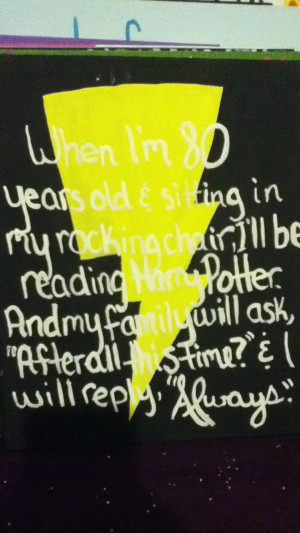 When I'm 80
years old & sitting in
my rocking chair, I'll be
reading Harry Potter.
And my family will ask,
"After all this time?" & I
will reply, "Always."